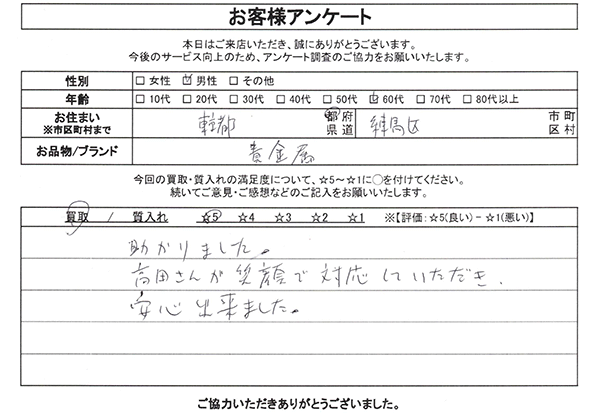 お客様アンケート
本日はご来店いただき、誠にありがとうございます。
今後のサービス向上のため、アンケート調査のご協力をお願いいたします。
性別 □女性 ☑男性 □その他
年齢 □10代 □20代 □30代 □40代 □50代 ☑60代 □70代 □80代以上
お住まい ※市区町村まで 東京都 都府県道 練馬区 市町区村
お品物/ブランド 貴金属
今回の買取・質入れの満足度について、☆5～☆1に○を付けてください。
続いてご意見・ご感想などのご記入をお願いいたします。
買取 / 質入れ ☆5 ☆4 ☆3 ☆2 ☆1 ※【評価:☆5(良い)－☆1(悪い)】
助かりました。
高田さんが笑顔で対応していただき、
安心出来ました。
ご協力いただきありがとうございました。